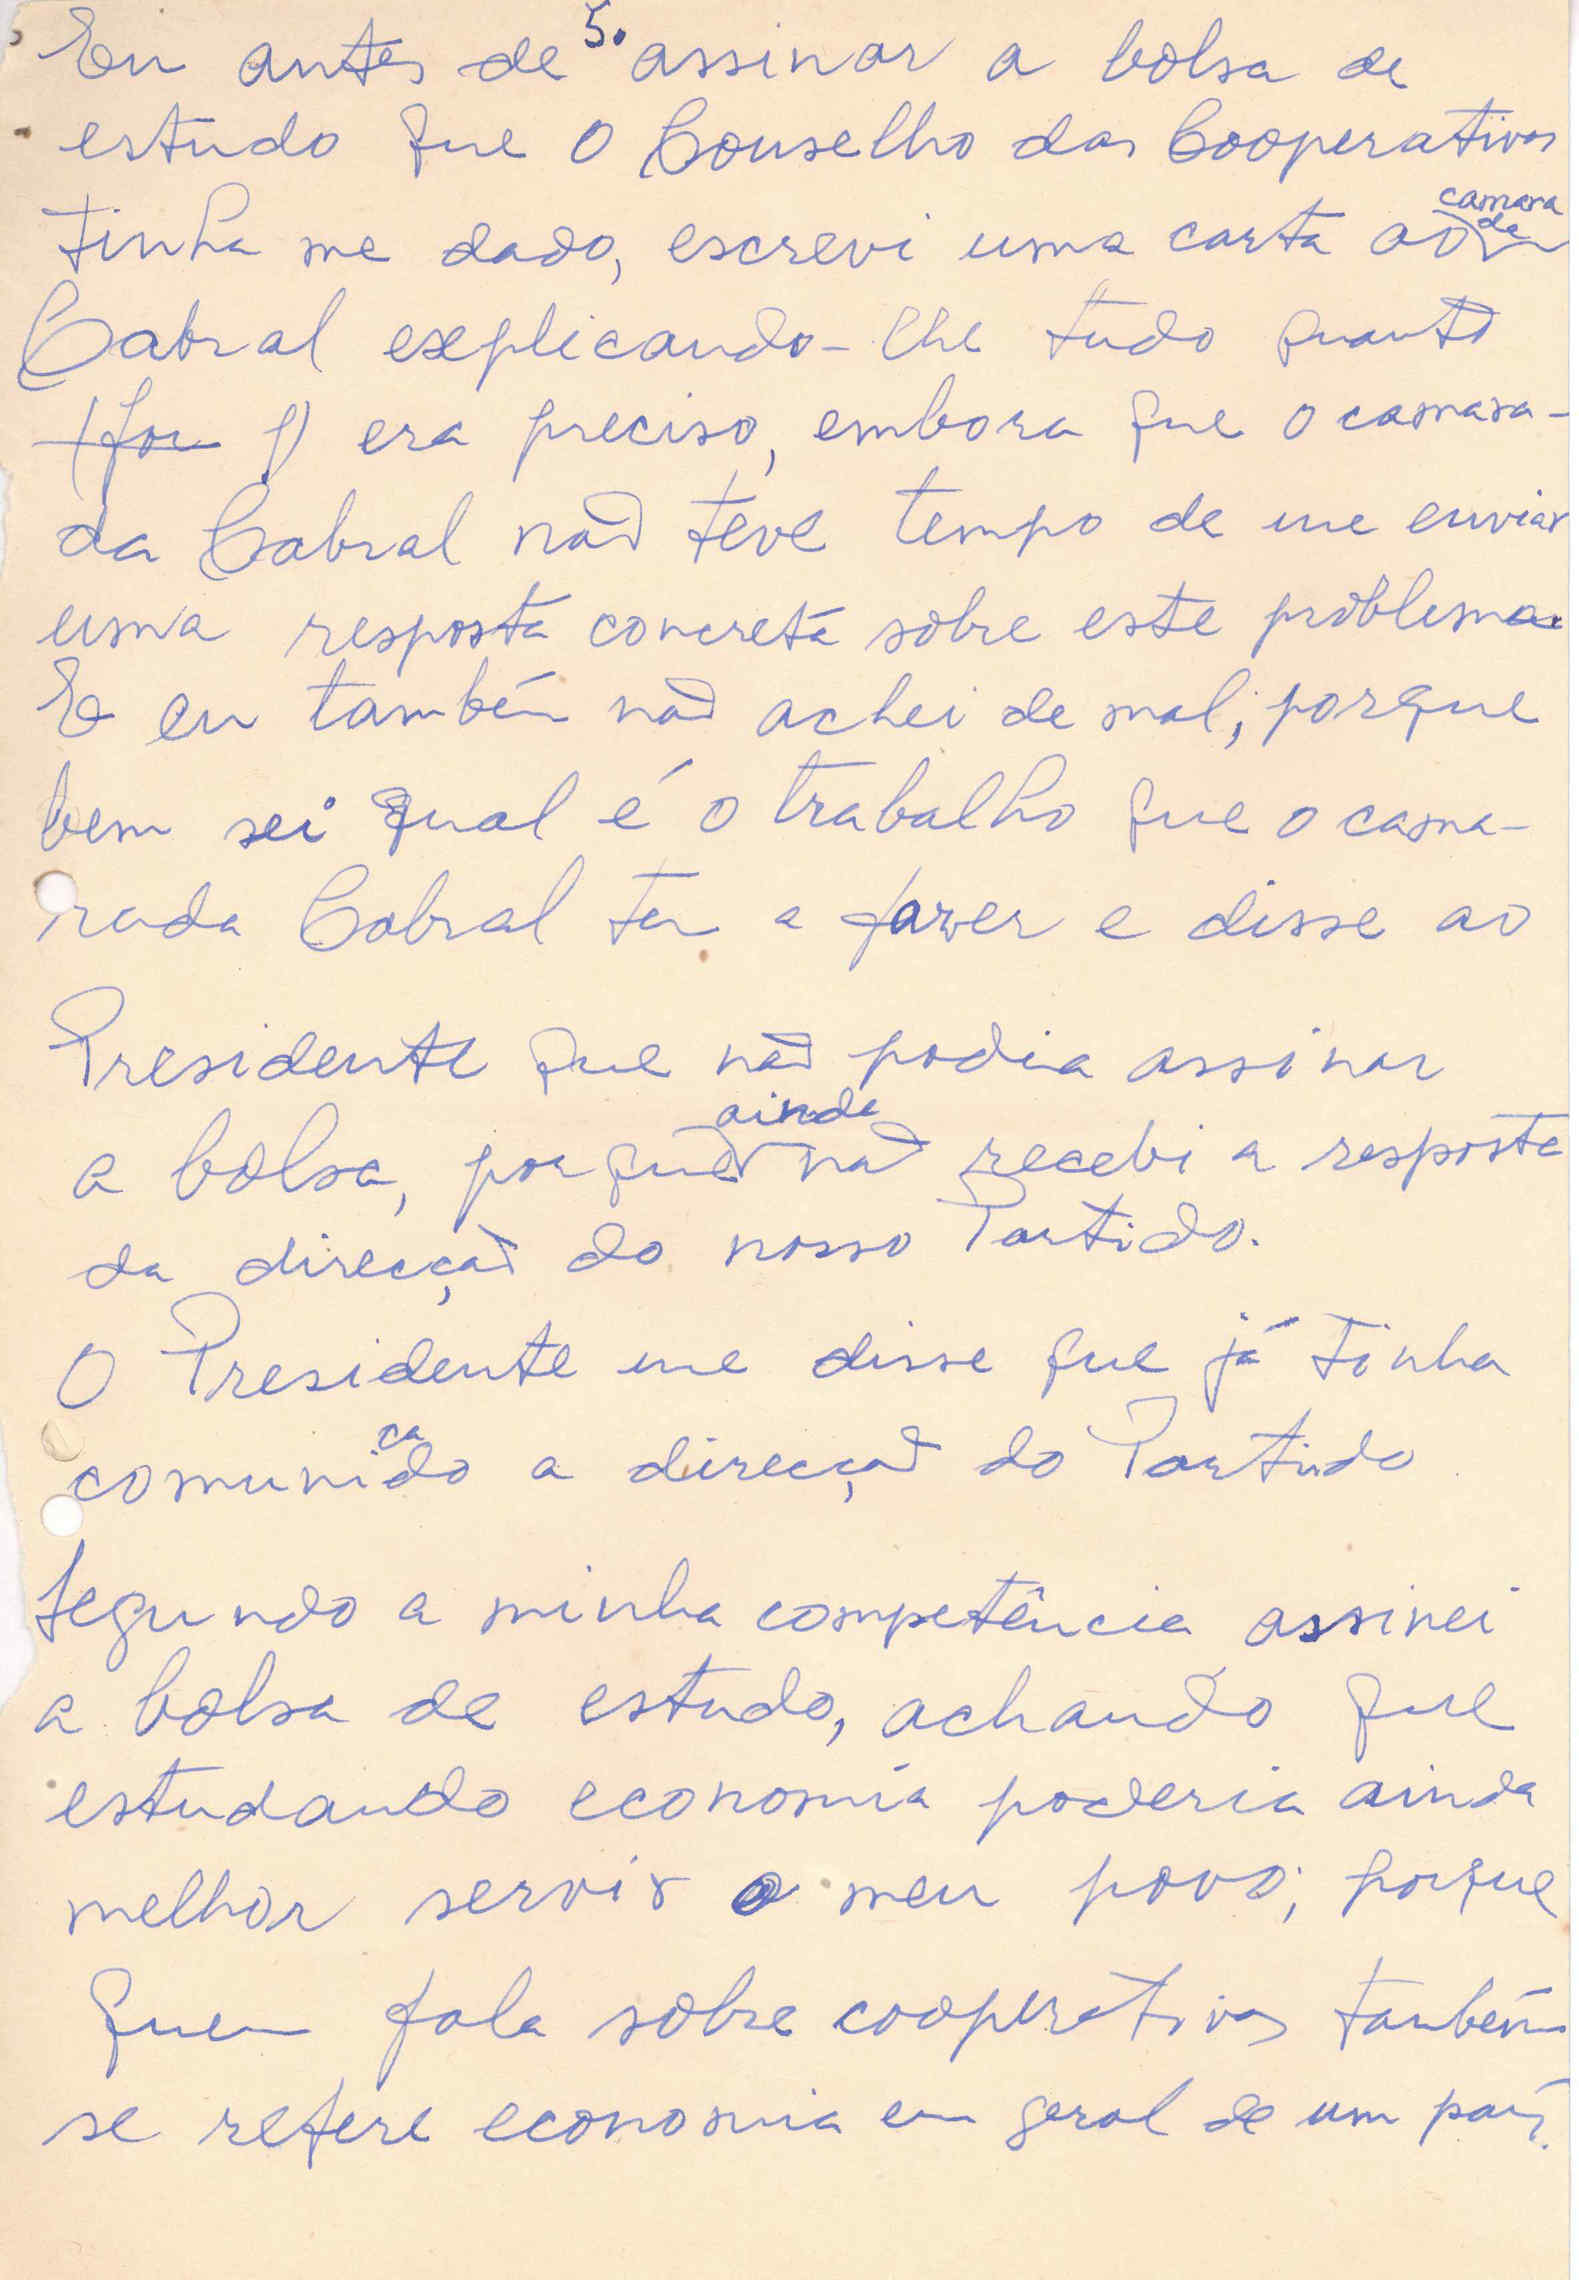 5.
Eu antes de assinar a bolsa de
estudo que o Conselho das Cooperativas
tinha me dado, escrevi uma carta ao camarada
Cabral explicando-lhe tudo quanto
era preciso, embora que o camara-
da Cabral não teve tempo de me enviar
uma resposta concreta sobre este problema.
E eu também não achei de mal; porque
bem sei qual é o trabalho que o cama-
rada Cabral tem a fazer e disse ao
Presidente que não podia assinar
a bolsa, porque ainda não recebi a resposta
da direcção do nosso Partido.
O Presidente me disse que já tinha
comunicado a direcção do Partido
Segundo a minha competência assinei
a bolsa de estudo, achando que
estudando economia poderia ainda
melhor servir o meu povo; porque
quem fala sobre cooperativas também
se refere economia em geral de um país.